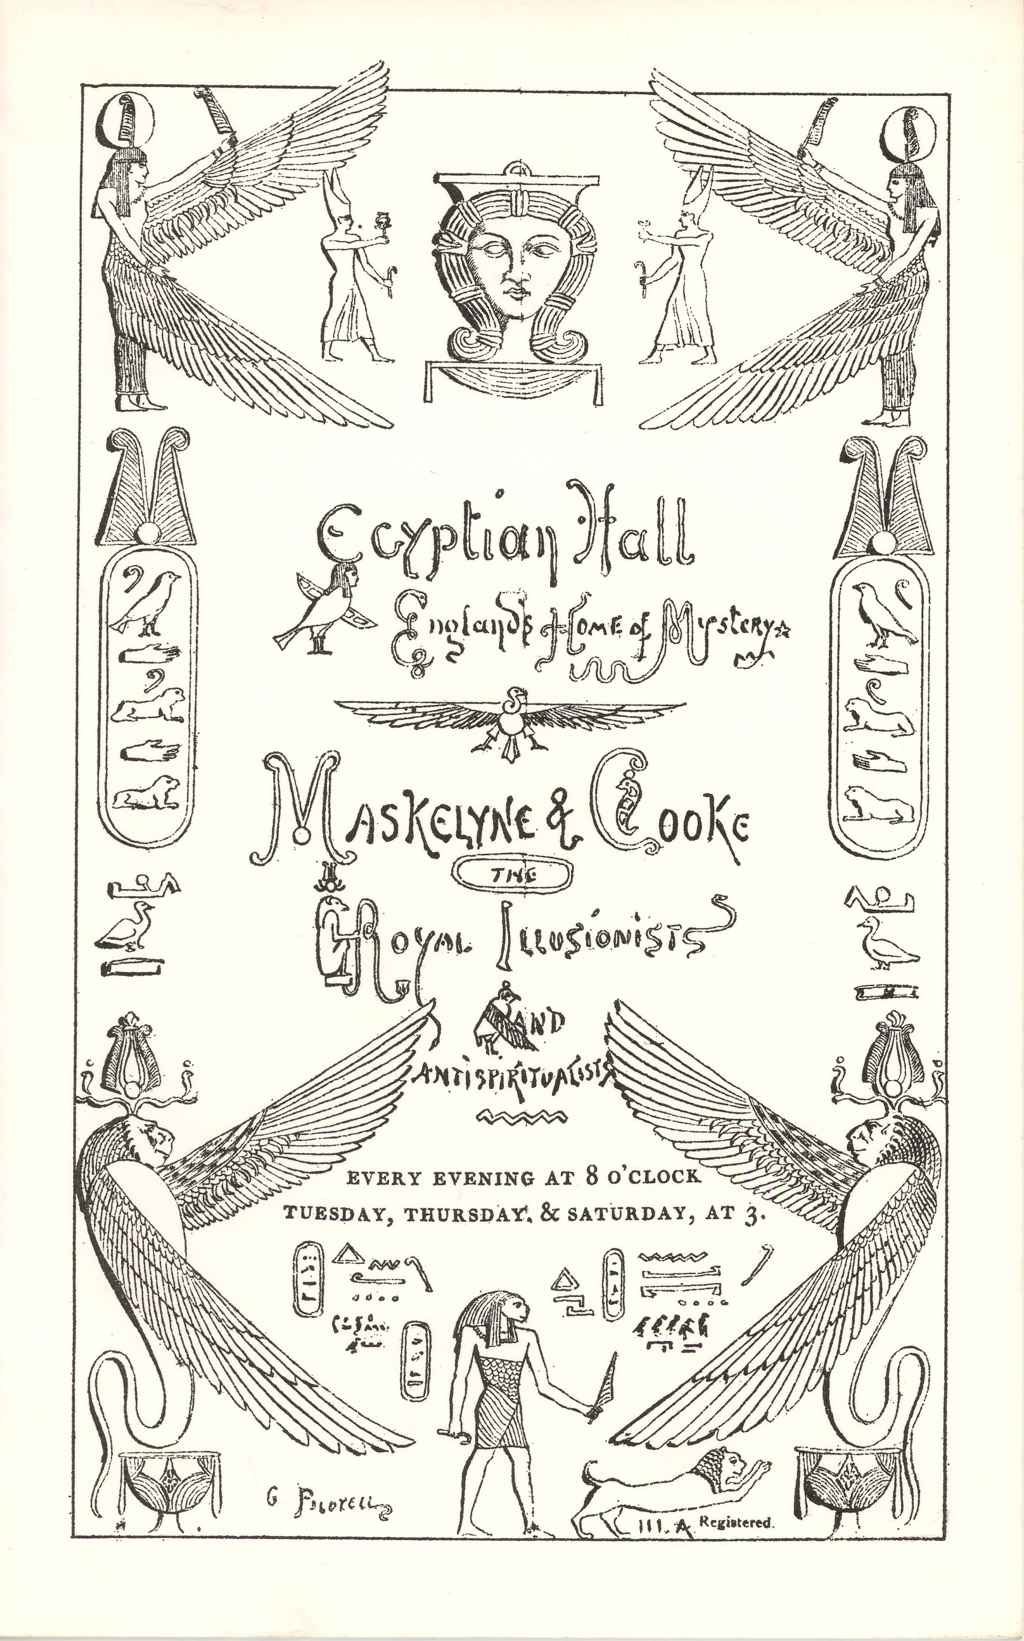 Egyptian Hall
England's Home of Mystery
Maskelyne & Cooke
THE
Royal Illusionists
AND
ANTISPIRITUALISTS
EVERY EVENING AT 8 O'CLOCK
TUESDAY, THURSDAY, & SATURDAY, AT 3.
G Pilotell
III. A Registered.